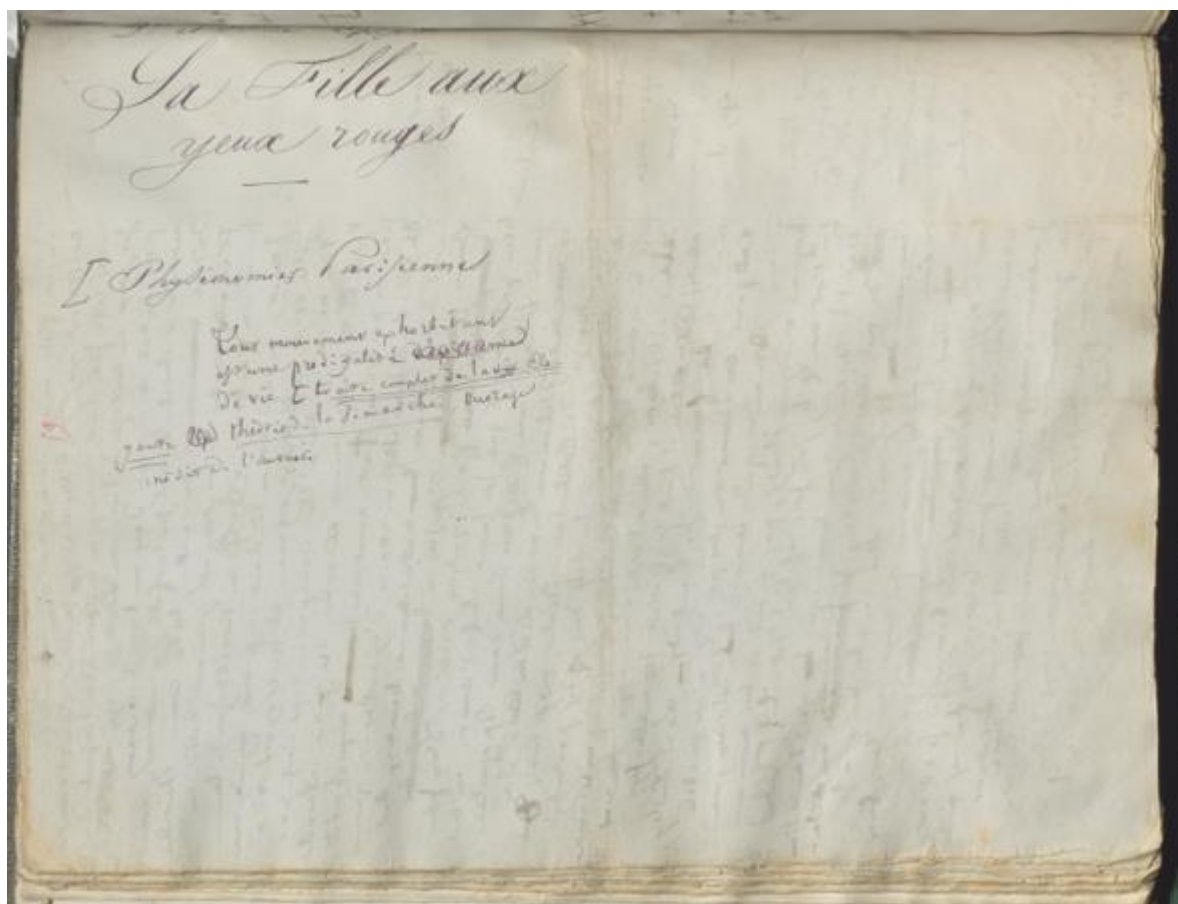 La Fille aux
yeux rouges
[ Physionomies Parisiennes
Tout mouvement exhorbitant
est une prodigalité
de vie. Traité complet de la vie élé-
gante théorie de la démarche. Ouvrage
inédit de l'auteur